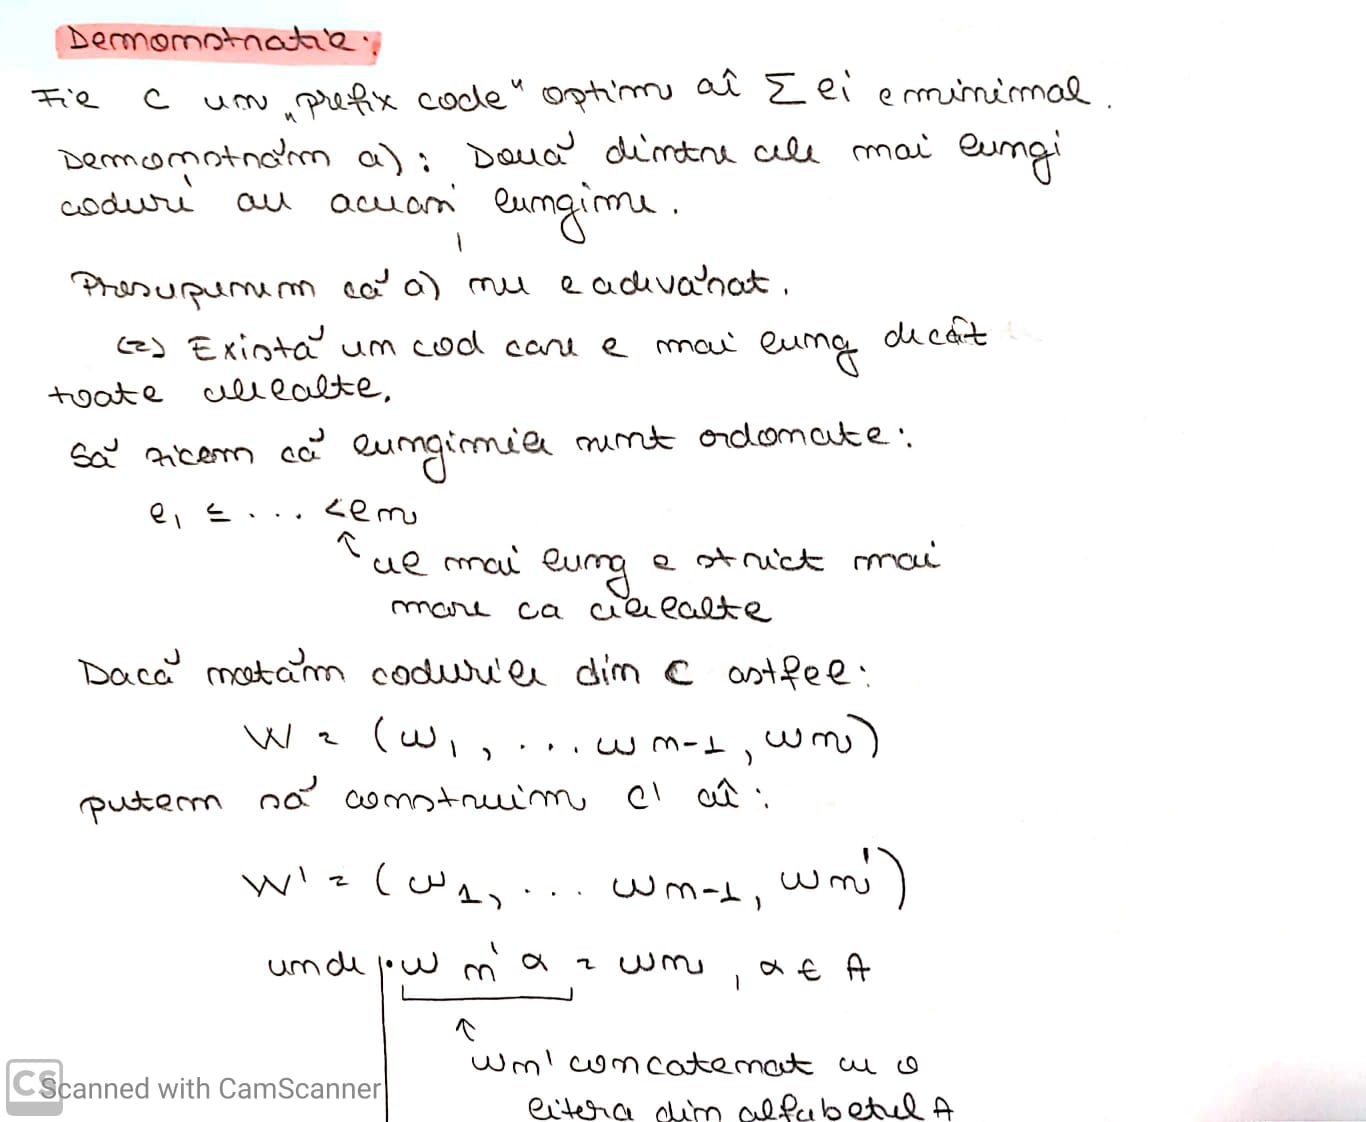 Demonstrație:
Fie C un „prefix code" optim aî Σ li e minimal.
Demonstrăm a): Două dintre cele mai lungi
coduri au aceași lungime.
Presupunem că a) nu e adevărat.
(=) Există un cod care e mai lung decât
toate celelalte.
Să zicem că lungimile sunt ordonate:
l1 ≤ ... < ln
↑ cel mai lung e strict mai
mare ca celelalte
Dacă notăm codurile din C astfel:
W = (w1, ... wn-1, wn)
putem să construim C' aî:
W' = (w1, ... wn-1, wn')
unde • wn' a = wn, a ∈ A
↑
wn' concatenat cu o
litera din alfabetul A
CS Scanned with CamScanner